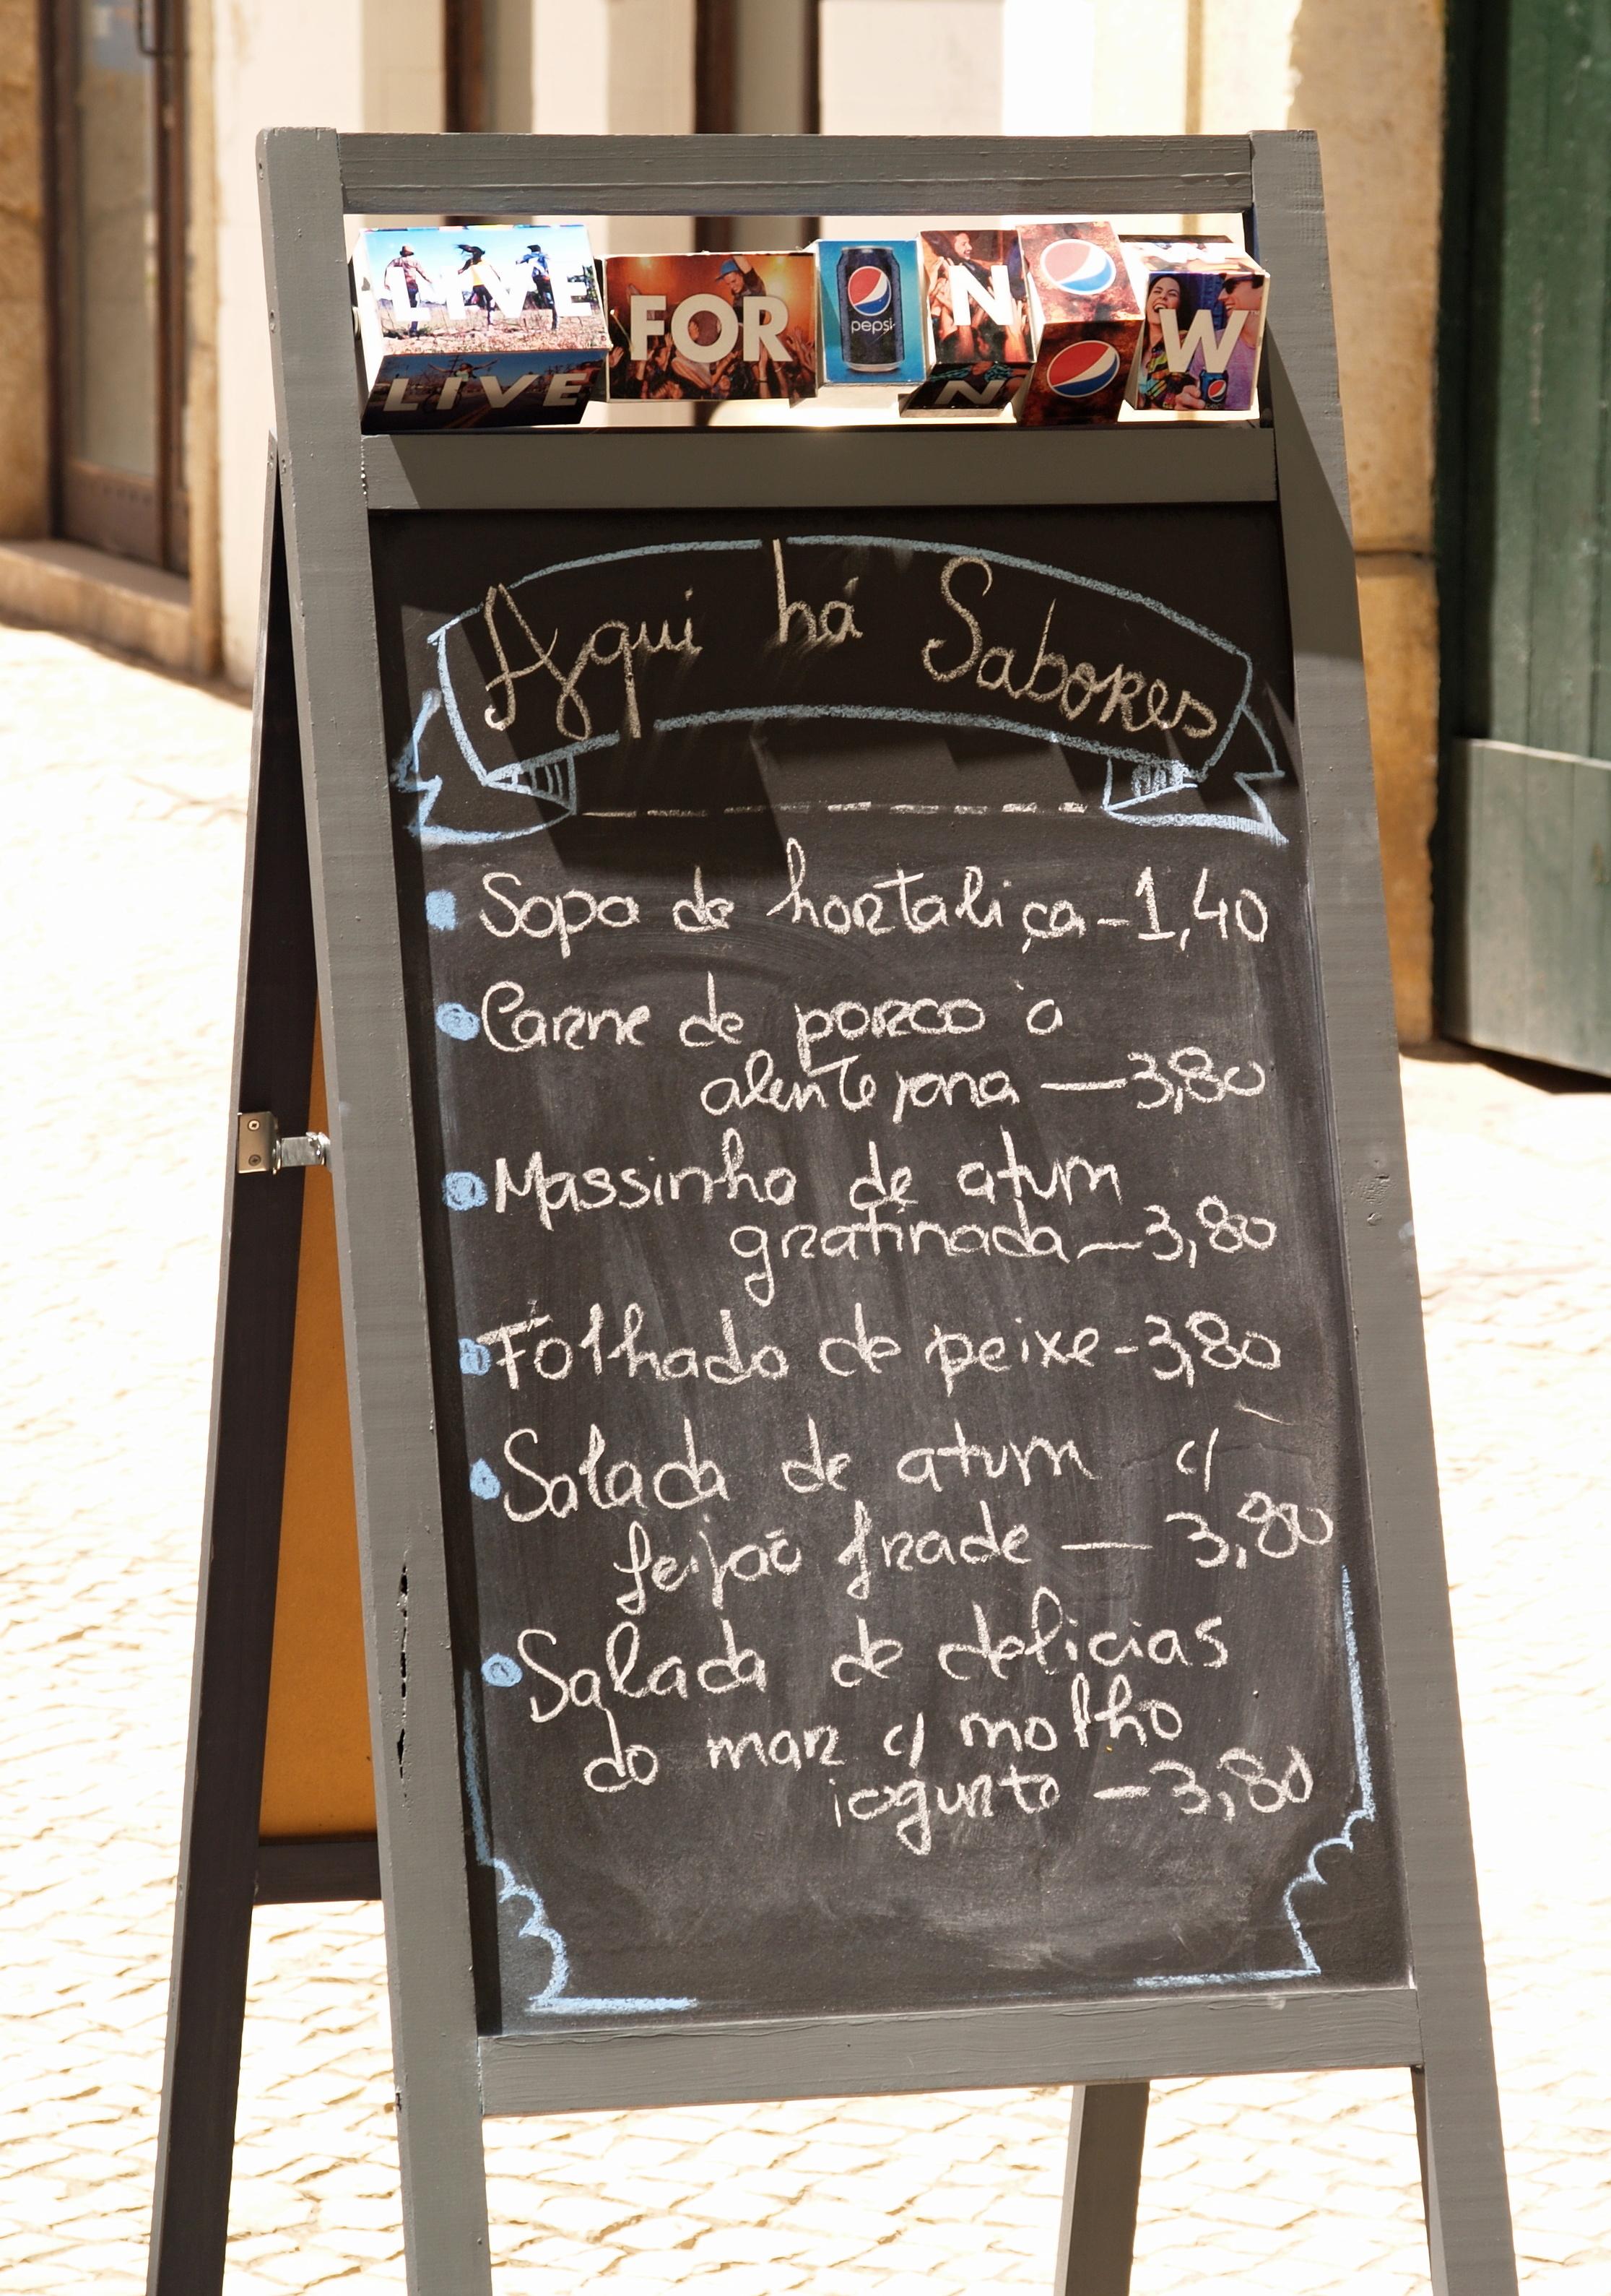 LIVE FOR pepsi N W
LIVE N
Aqui há Sabores
Sopa de hortaliça - 1,40
Carne de porco à
alentejana — 3,80
Massinha de atum
gratinada — 3,80
Folhado de peixe - 3,80
Salada de atum c/
feijão frade — 3,80
Salada de delicias
do mar c/ molho
iogurte - 3,80